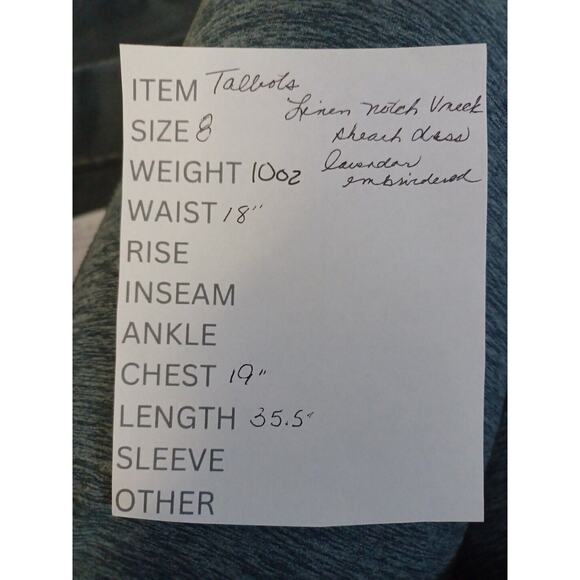 ITEM Talbots
Linen notch Vneck
SIZE 8
sheath dress
WEIGHT 10oz
lavendar
embroidered
WAIST 18"
RISE
INSEAM
ANKLE
CHEST 19"
LENGTH 35.5"
SLEEVE
OTHER